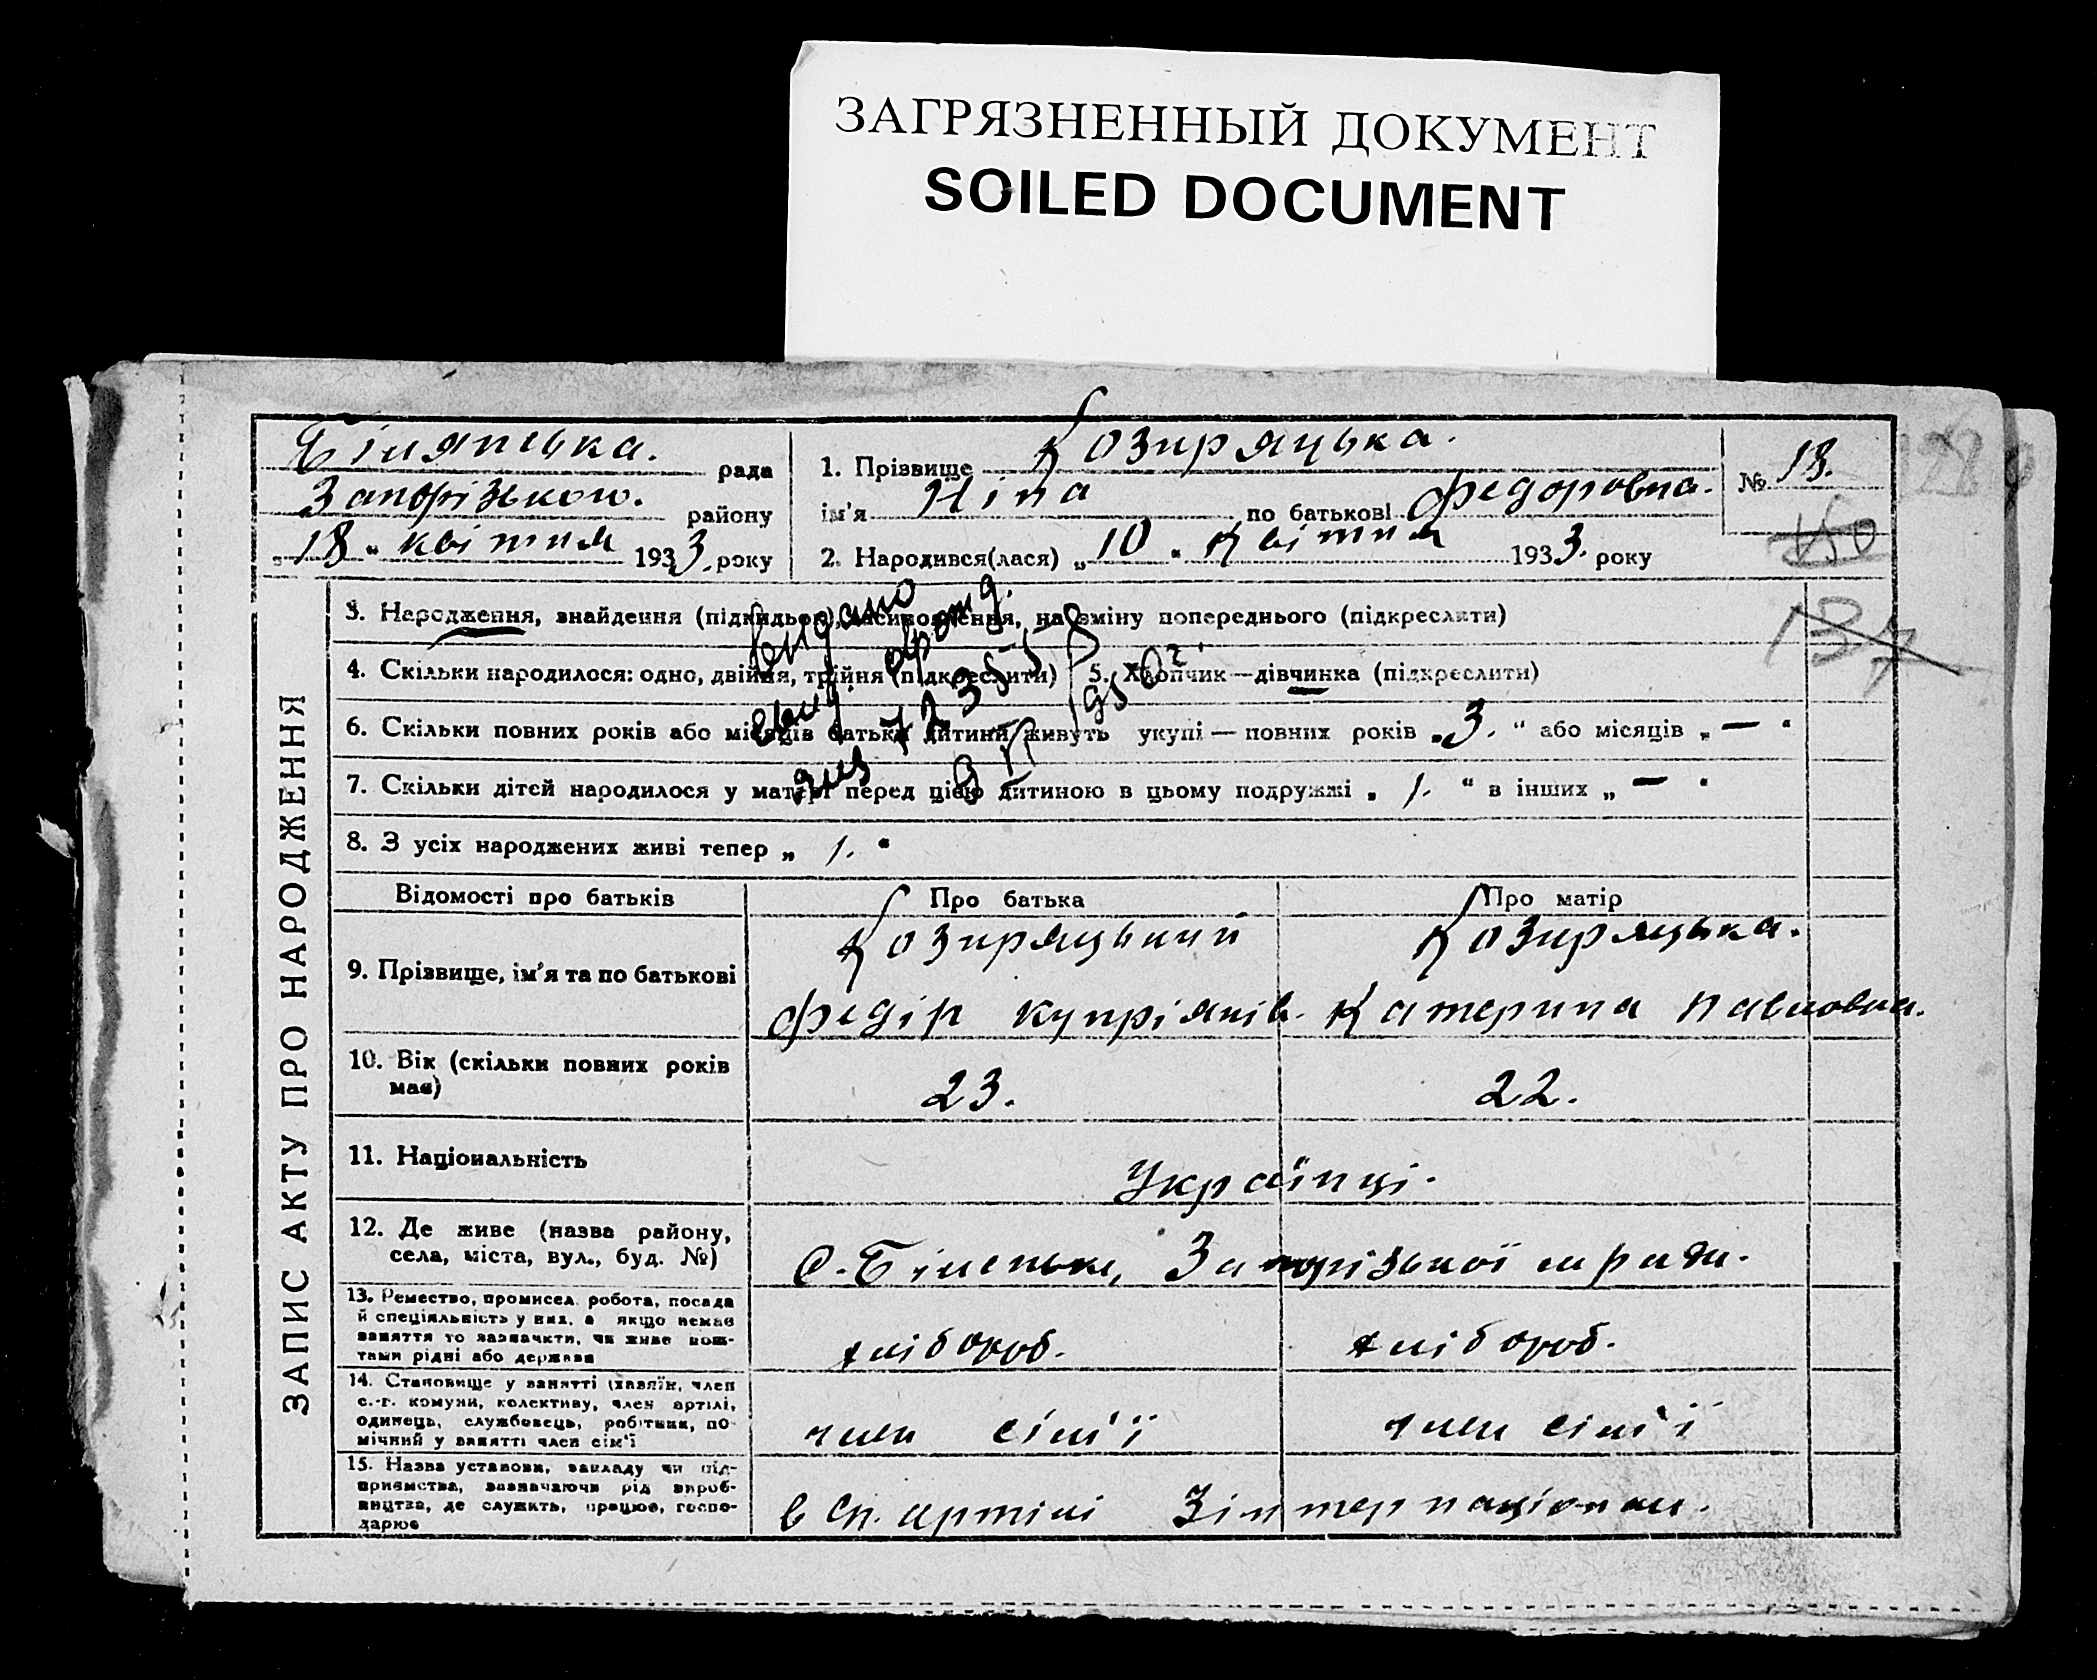 ЗАГРЯЗНЕННЫЙ ДОКУМЕНТ
SOILED DOCUMENT
Білянська. рада
Запорізького. району
„18" квітня 1933 року
1. Прізвище Козиряцька.
ім'я Ніна по батькові Федоровна.
2. Народився(лася) „10" квітня 1933. року
№ 18.
150
137
ЗАПИС АКТУ ПРО НАРОДЖЕННЯ
3. Народження, знайдення (підкидьок), всиновлення, на зміну попереднього (підкреслити)
4. Скільки народилося: одно, двійня, трійня (підкреслити) 5. Хлопчик—дівчинка (підкреслити)
6. Скільки повних років або місяців батьки дитини живуть укупі — повних років „3." або місяців „—"
7. Скільки дітей народилося у матері перед цією дитиною в цьому подружжі „1." в інших „—"
8. З усіх народжених живі тепер „1."
Видано
1950 г.
Відомості про батьків
Про батька
Про матір
9. Прізвище, ім'я та по батькові
Козиряцький
Федір Купріянів.
Козиряцька.
Катерина Павловна.
10. Вік (скільки повних років має)
23.
22.
11. Національність
Українці.
12. Де живе (назва району,
села, міста, вул., буд. №)
с. Біленьке, Запорізької м ради.
13. Ремество, промисел, робота, посада
й спеціяльність у них, а якщо немає
заняття то зазначити, чи живе кош-
тами рідні або держави
хлібороб.
хлібороб.
14. Становище у занятті (хазяїн, член
с.-г. комуни, колективу, член артілі,
одинець, службовець, робітник, по-
мічний у занятті член сім'ї
член сім'ї
член сім'ї
15. Назва установи, закладу чи під-
приємства, зазначаючи рід вироб-
ництва, де служить, працює, госпо-
дарює
в сг. артілі Зінтернаціонал.